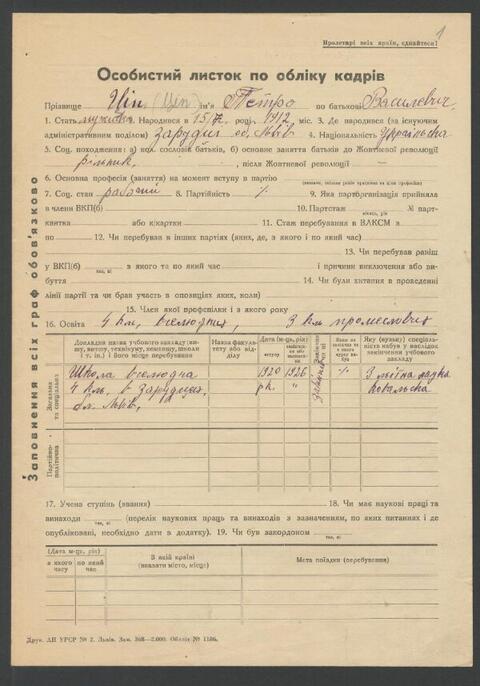 1
Пролетарі всіх країн, єднайтеся!
Особистий листок по обліку кадрів
Прізвище Ціп (Цiп) ім'я Петро по батькові Василевич
1. Стать мужчина Народився в 15/ році 1912 міс. 3. Де народився (за існуючим
адміністративним поділом) Зарудци об. Львів 4. Національність Українська
5. Соц. походження: а) кол. сословіє батьків, б) основне заняття батьків до Жовтневої революції
рільник , після Жовтневої революції —
6. Основна професія (заняття) на момент вступу в партію
7. Соц. стан рабочий 8. Партійність % 9. Яка парторганізація прийняла
в члени ВКП(б) 10. Партстаж № парт-
місяць, рік
квитка або к/картки 11. Стаж перебування в ВЛКСМ з
по 12. Чи перебував в інших партіях (яких, де, з якого і по який час)
13. Чи перебував раніш
у ВКП(б) з якого та по який час і причини виключення або ви-
так, ні
буття 14. Чи були хитання в проведенні
лінії партії та чи брав участь в опозиціях яких, коли)
15. Член якої профспілки і з якого року
16. Освіта 4 кл. вселюдна, 3 кл. промислових
Загальна та спеціальна
Докладна назва учбового закладу (ви-
шу, витшу, технікуму, комвишу, школи
і т. ін.) і його місце перебування
Назва факуль-
тету або від-
ділу
Дата (м-ць, рік)
вступу
Закінчив чи ні
Яку (вузьку) спеціаль-
ність набув у наслідок
закінчення учбового
закладу
Школа вселюдна 1920 1926 % 3 літна наука
4 кл. в Зарудцях рк. " ковальска
обл. Львів.
Партійно-
політична
17. Учена ступінь (звання) 18. Чи має наукові праці та
винаходи (перелік наукових праць та винаходів з зазначенням, по яких питаннях і де
так, ні
опубліковані, необхідно дати в додатку). 19. Чи був закордоном
так, ні
(Дата м-ць, рік)
з якого часу
по який час
В якій країні
(вказати місто, місце)
Мета поїздки (перебування)
Заповнення всіх граф обов'язково
Друк. АН УРСР № 2. Львів. Зам. 368—2.000. Обліліт № 1186.